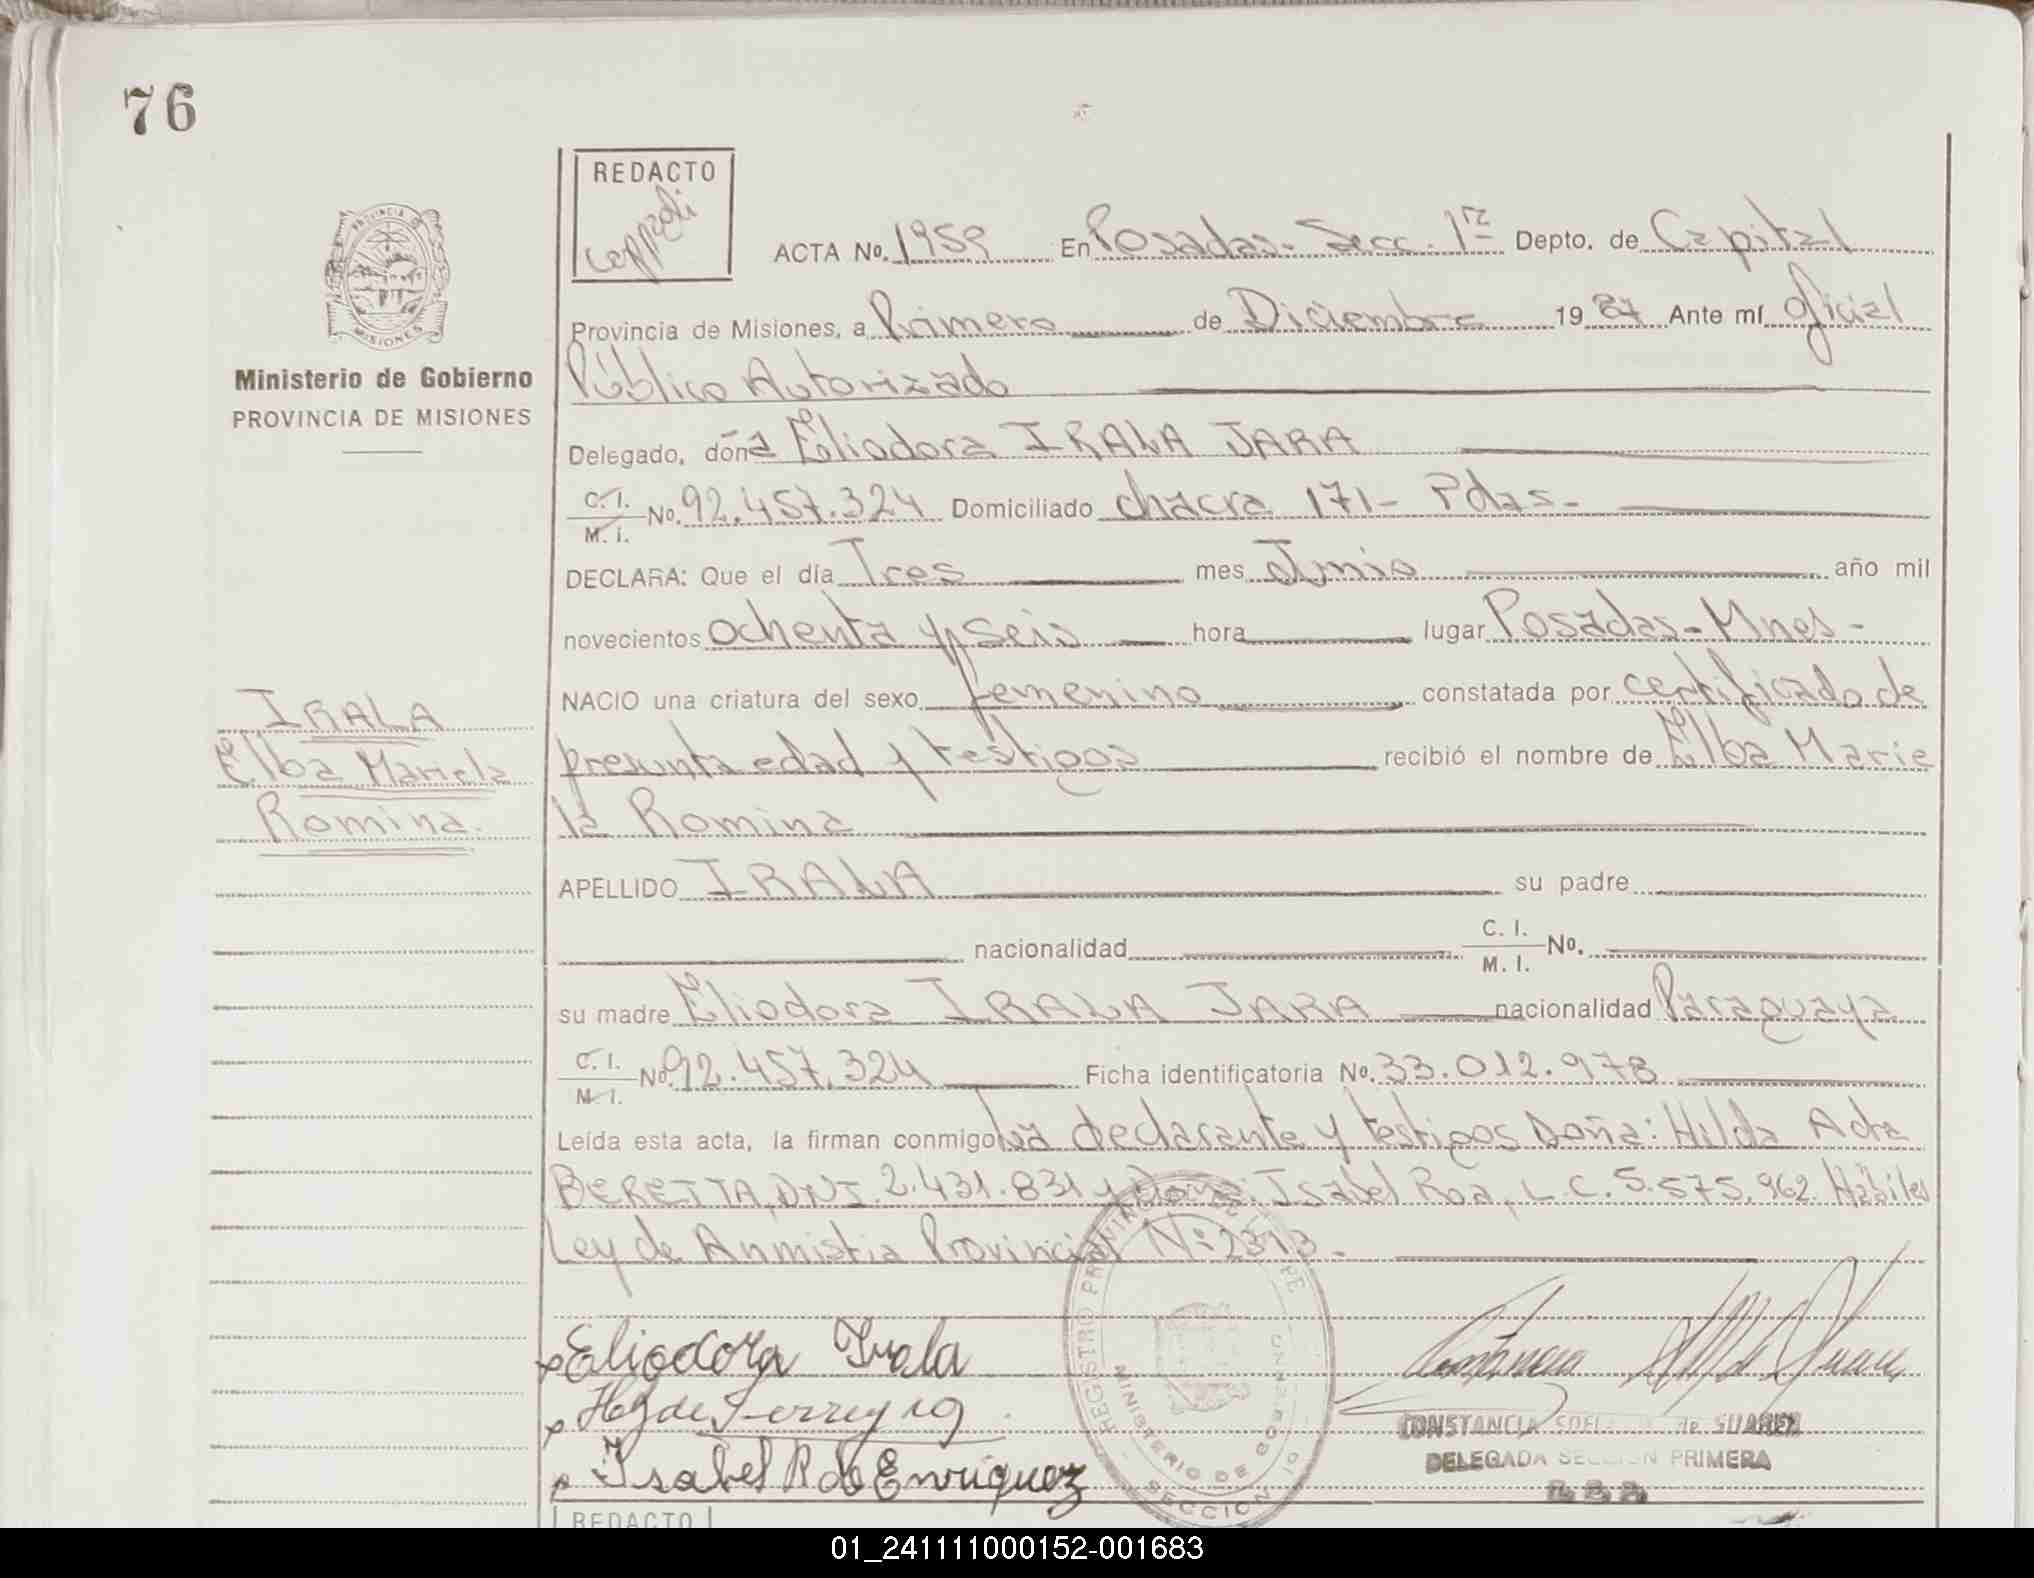 76
REDACTO
ACTA No. 1959 En Posadas-Secc. 1ra Depto. de Capital
Provincia de Misiones, a Primero de Diciembre 1987 Ante mí Oficial
Público Autorizado
Ministerio de Gobierno
PROVINCIA DE MISIONES
Delegado, doña Eliodora IRALA JARA
C. I.
M. I.
No. 92.457.324 Domiciliado chacra 171- Pdas-
DECLARA: Que el día Tres mes Junio año mil
novecientos ochenta y seis hora lugar Posadas-Mnes-
NACIO una criatura del sexo femenino constatada por certificado de
presunta edad y testigos recibió el nombre de Elba Marie
la Romina
IRALA
Elba Mariela
Romina.
APELLIDO IRALA su padre
nacionalidad C. I. M. I. No.
su madre Eliodora IRALA JARA nacionalidad Paraguaya
C. I. M. I. No. 92.457.324 Ficha identificatoria No. 33.012.978
Leída esta acta, la firman conmigo la declarante y testigos Doña: Hilda
BERETTA, DNI. 2.431.831 y Doña: Isabel Roa, L.C. 5.575.962. Hábiles
Ley de Anmistia Provincial Nº 2313.-
Eliodora Irala
Isabel R de Enriquez
REGISTRO PROVINCIAL DE
MINISTERIO DE GOBIERNO
SECCION 10
CONSTANCIA de SUAREZ
DELEGADA SECCION PRIMERA
REDACTO
01_241111000152-001683